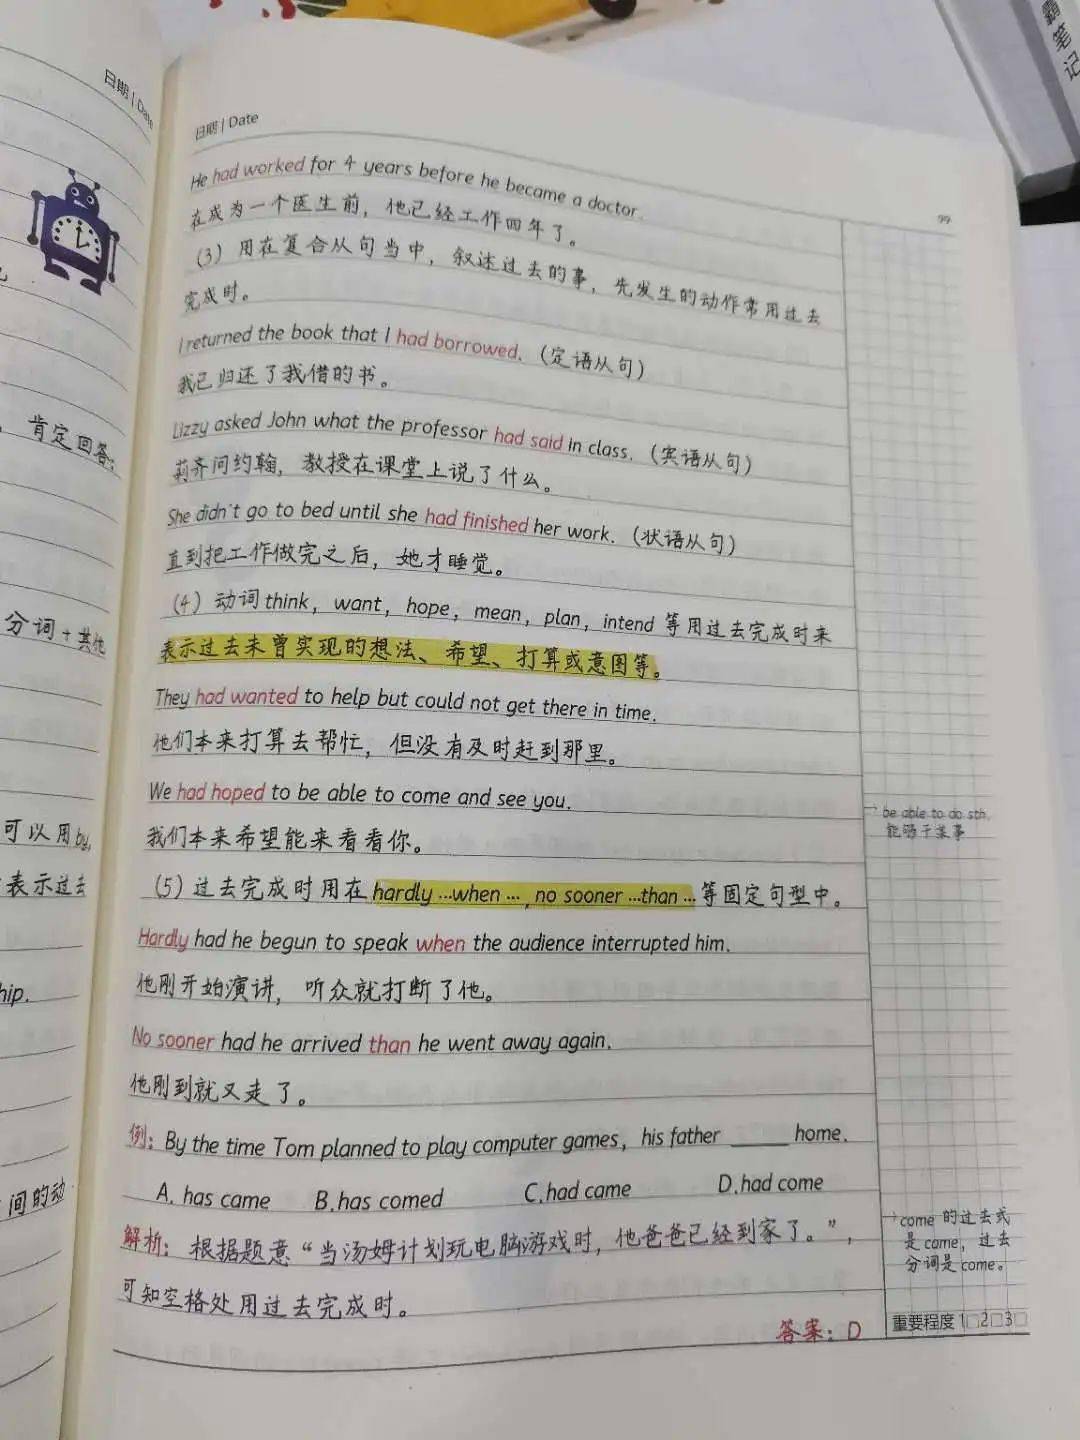 霸笔记
日期 | Date
肯定回答：
分词＋其他
可以用by,
表示过去
hip.
间的动
日期 | Date
He had worked for 4 years before he became a doctor.
在成为一个医生前，他已经工作四年了。
（3）用在复合从句当中，叙述过去的事，先发生的动作常用过去
完成时。
I returned the book that I had borrowed.（定语从句）
我已归还了我借的书。
Lizzy asked John what the professor had said in class.（宾语从句）
莉齐问约翰，教授在课堂上说了什么。
She didn't go to bed until she had finished her work.（状语从句）
直到把工作做完之后，她才睡觉。
（4）动词think，want，hope，mean，plan，intend等用过去完成时来
表示过去未曾实现的想法、希望、打算或意图等。
They had wanted to help but could not get there in time.
他们本来打算去帮忙，但没有及时赶到那里。
We had hoped to be able to come and see you.
我们本来希望能来看看你。
（5）过去完成时用在hardly …when …, no sooner …than …等固定句型中。
Hardly had he begun to speak when the audience interrupted him.
他刚开始演讲，听众就打断了他。
No sooner had he arrived than he went away again.
他刚到就又走了。
例：By the time Tom planned to play computer games，his father ______ home.
A. has came B.has comed C.had came D.had come
解析：根据题意“当汤姆计划玩电脑游戏时，他爸爸已经到家了。”，
可知空格处用过去完成时。
答案：D
99
→be able to do sth.
能够干某事
→come 的过去式
是 came，过去
分词是 come。
重要程度 1□2□3□